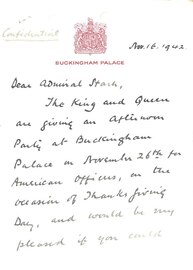 Confidential
BUCKINGHAM PALACE
Nov. 16. 1942.
Dear Admiral Stark,
The King and Queen
are giving an Afternoon
Party at Buckingham
Palace on November 26th for
American Officers, on the
occasion of Thanksgiving
Day, and would be very
pleased if you could